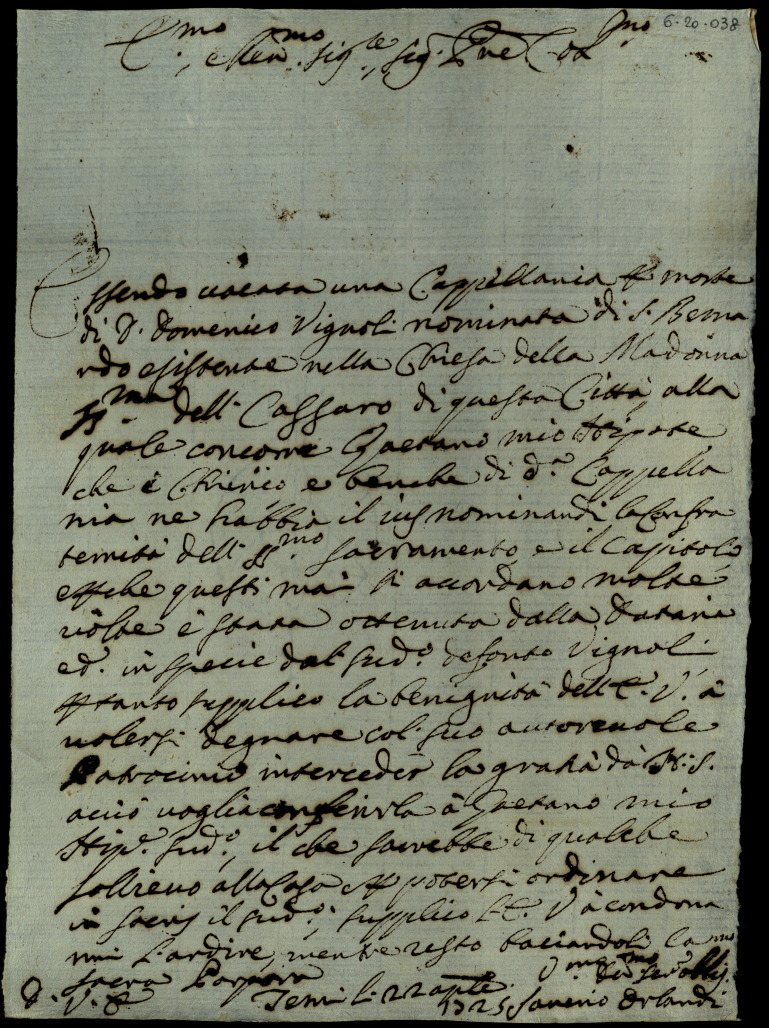 6-20-038
E.mo, e Rev.mo Sig.re, Sig. Pne Col.mo
Essendo vacata una Cappellania p morte
di D. Domenico Vignoli nominata di S. Berna
rdo esistente nella Chiesa della Madonna
SS.ma dell Cassaro di questa Città, alla
quale concorre Gaetano mio Nipote
che è Chierico e benche di d.a Cappella
nia ne habbia il ius nominandi la Confra
ternità dell SS.mo Sacramento, e il Capitolo
e pche questi mai si accordano molte
volte è stata ottenuta dalla Dataria
ed. in specie dal sud.o defonto Vignoli
p tanto supplico la benignità dell E. V. à
volersi degnare col suo autorevole
Patrocinio interceder la gratia da N. S.
acciò voglia conferirla à Gaetano mio
Nip.e sud.o, il che sarebbe di qualche
sollievo alla Casa e p potersi ordinare
in sacris il sud.o; supplico l E. V. à condona
rmi l ardire, mentre resto baciandoli la
sacra Porpora
D. V. E.
Terni li 22 aple 1725
Saverio Orlandi